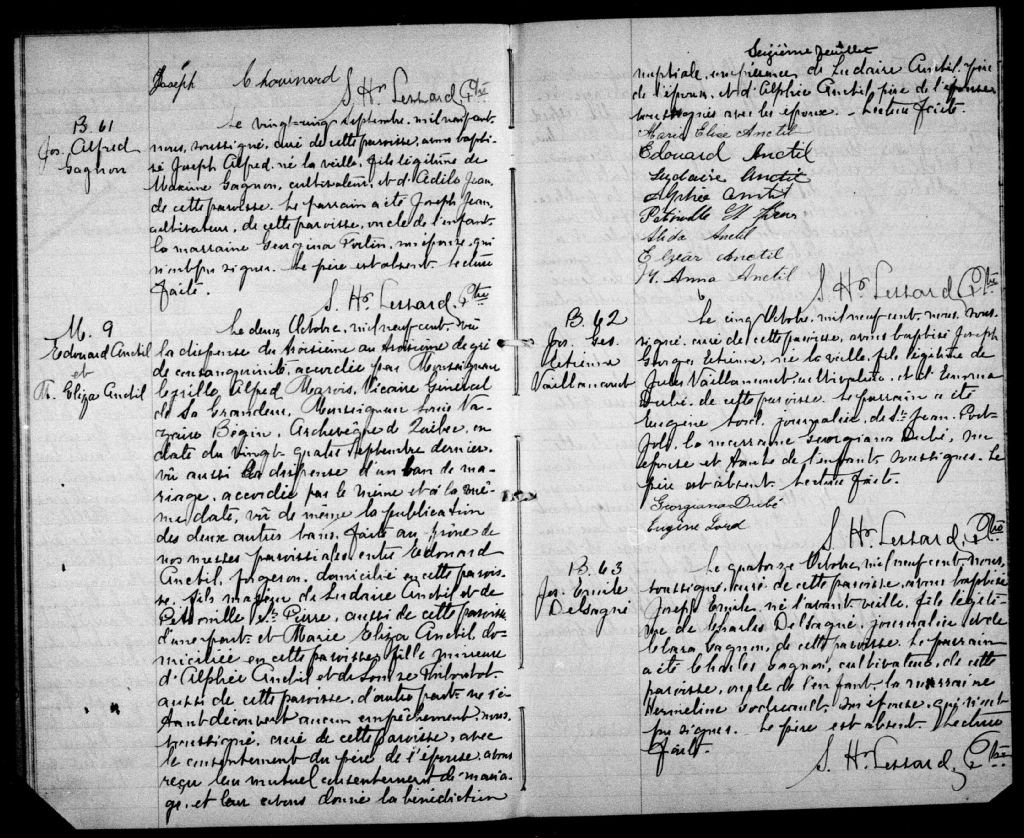 Joseph Chouinard
S. Hr Lessard, Ptre
B. 61
Jos. Alfred
Gagnon
Le vingt-cinq Septembre, mil neuf cent,
nous, soussigné, curé de cette paroisse, avons bapti-
sé Joseph Alfred, né la veille, fils légitime de
Maxime Gagnon, cultivateur, et d'Adèle Jean,
de cette paroisse. Le parrain a été Joseph Jean,
cultivateur, de cette paroisse, oncle de l'enfant,
la marraine Georgina Potvin, son épouse, qui
n'ont pu signer. Le père est absent. Lecture
faite.
S. Hr Lessard, Ptre
M. 9
Edouard Anctil
et
M. Eliza Anctil
Le deux Octobre, mil neuf cent, vû
la dispense du troisième au troisième degré
de consanguinité, accordée par Monseigneur
Cyrille Alfred Marois, Vicaire Général
de Sa Grandeur, Monseigneur Louis Na-
zaire Bégin, Archevêque de Québec, en
date du vingt-quatre Septembre dernier,
vû aussi la dispense d'un ban de ma-
riage, accordée par le même et à la mê-
me date, vû de même la publication
des deux autres bans, faite au prône de
nos messes paroissiales entre Edouard
Anctil, forgeron, domicilié en cette parois-
se, fils majeur de Ludaire Anctil et de
Pétronille St Pierre, aussi de cette paroisse
d'une part, et Marie Eliza Anctil, do-
miciliée en cette paroisse, fille mineure
d'Alphée Anctil et de Louise Thiboutot,
aussi de cette paroisse, d'autre part, ne s'é-
tant découvert aucun empêchement, nous,
soussigné, curé de cette paroisse, avec
le consentement du père de l'épouse, avons
reçu leur mutuel consentement de maria-
ge, et leur avons donné la bénédiction
Seizième feuillet
nuptiale, en présence de Ludaire Anctil, père
de l'époux, et d'Alphée Anctil, père de l'épouse,
soussignés avec les époux. Lecture faite.
Marie Elise Anctil
Edouard Anctil
Lydaire Anctil
Alphée Anctil
Petronille St Pierre
Alida Anctil
Elzéar Anctil
M. Anna Anctil
S. Hr Lessard, Ptre
B. 62
Jos. Geo.
Etienne
Vaillancourt
Le cinq Octobre, mil neuf cent, nous, sous-
signé, curé de cette paroisse, avons baptisé Joseph
Georges Etienne, né la veille, fils légitime de
Jules Vaillancourt, cultivateur, et d'
Dubé, de cette paroisse. Le parrain a été
Eugène Lord, journalier, de St Jean Port-
Joli, la marraine Georgiana Dubé, son
épouse et tante de l'enfant, soussignés. Le
père est absent. Lecture faite.
Georgiana Dubé
Eugène Lord
S. Hr Lessard, Ptre
B. 63
Jos. Emile
Delsagné
Le quatorze Octobre, mil neuf cent, nous,
soussigné, curé de cette paroisse, avons baptisé
Joseph Emile, né l'avant-veille, fils légiti-
me de Charles Delsagné, journalier et de
Clara Gagnon, de cette paroisse. Le parrain
a été Charles Gagnon, cultivateur, de cette
paroisse, oncle de l'enfant, la marraine
Herméline son épouse, qui n'ont
pu signer. Le père est absent. Lecture
faite.
S. Hr Lessard, Ptre